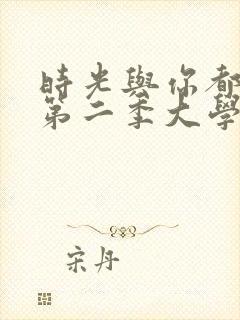 時光與你都
第二季大學
宋丹